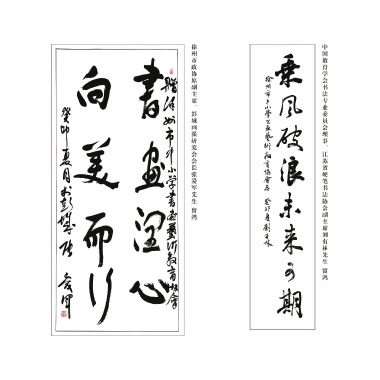 中国教育学会书法专业委员会理事、江苏省硬笔书法协会副主席刘有林先生 留鸿
乘风破浪未来可期
徐州市中小学书画艺术教育协会
徐州市政协原副主席、彭城画派研究会会长张爱军先生 留鸿
赠徐州市中小学书画艺术教育协会
書畫润心
向美而行
癸卯夏月於彭城